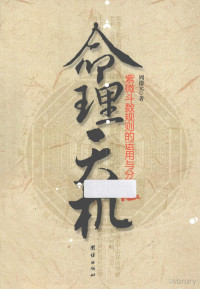 命理天机
紫微斗数规则的运用与分
著
团结出版社